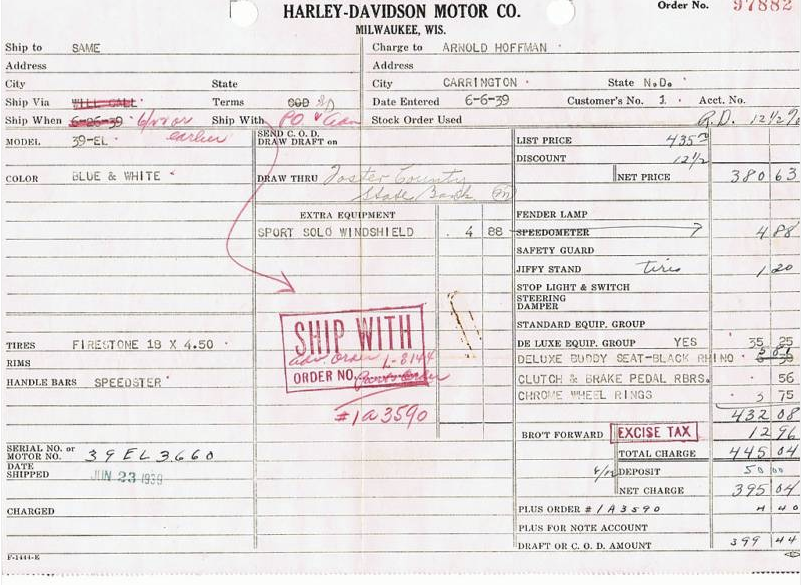 HARLEY-DAVIDSON MOTOR CO.
MILWAUKEE, WIS.
Order No. 97882
Ship to SAME
Charge to ARNOLD HOFFMAN
Address
Address
City State
City CARRINGTON State N.D.
Ship Via WILL CALL
Terms COD SD
Date Entered 6-6-39 Customer's No. 1 Acct. No.
Ship When 6-26-39 or earlier
Ship With PO
Stock Order Used R.D. 12½%
MODEL 39-EL
SEND C.O.D.
DRAW DRAFT on
LIST PRICE 435
DISCOUNT 12½
COLOR BLUE & WHITE
DRAW THRU Foster County
State Bank
NET PRICE 380 63
EXTRA EQUIPMENT
SPORT SOLO WINDSHIELD . 4 88
FENDER LAMP
SPEEDOMETER 4 88
SAFETY GUARD
JIFFY STAND tires 1 20
STOP LIGHT & SWITCH
STEERING
DAMPER
STANDARD EQUIP. GROUP
SHIP WITH
adv order L-8144
ORDER NO.
#1A3590
TIRES FIRESTONE 18 X 4.50
DE LUXE EQUIP. GROUP YES 35 25
RIMS
DELUXE BUDDY SEAT-BLACK RHINO
HANDLE BARS SPEEDSTER
CLUTCH & BRAKE PEDAL RBRS. 56
CHROME WHEEL RINGS 3 75
432 08
BRO'T FORWARD EXCISE TAX 12 96
SERIAL NO. or
MOTOR NO. 39EL3660
TOTAL CHARGE 445 04
DATE
SHIPPED JUN 23 1939
DEPOSIT 50 00
NET CHARGE 395 04
CHARGED
PLUS ORDER #1A3590 4 40
PLUS FOR NOTE ACCOUNT
DRAFT OR C.O.D. AMOUNT 399 44
F-1444-E